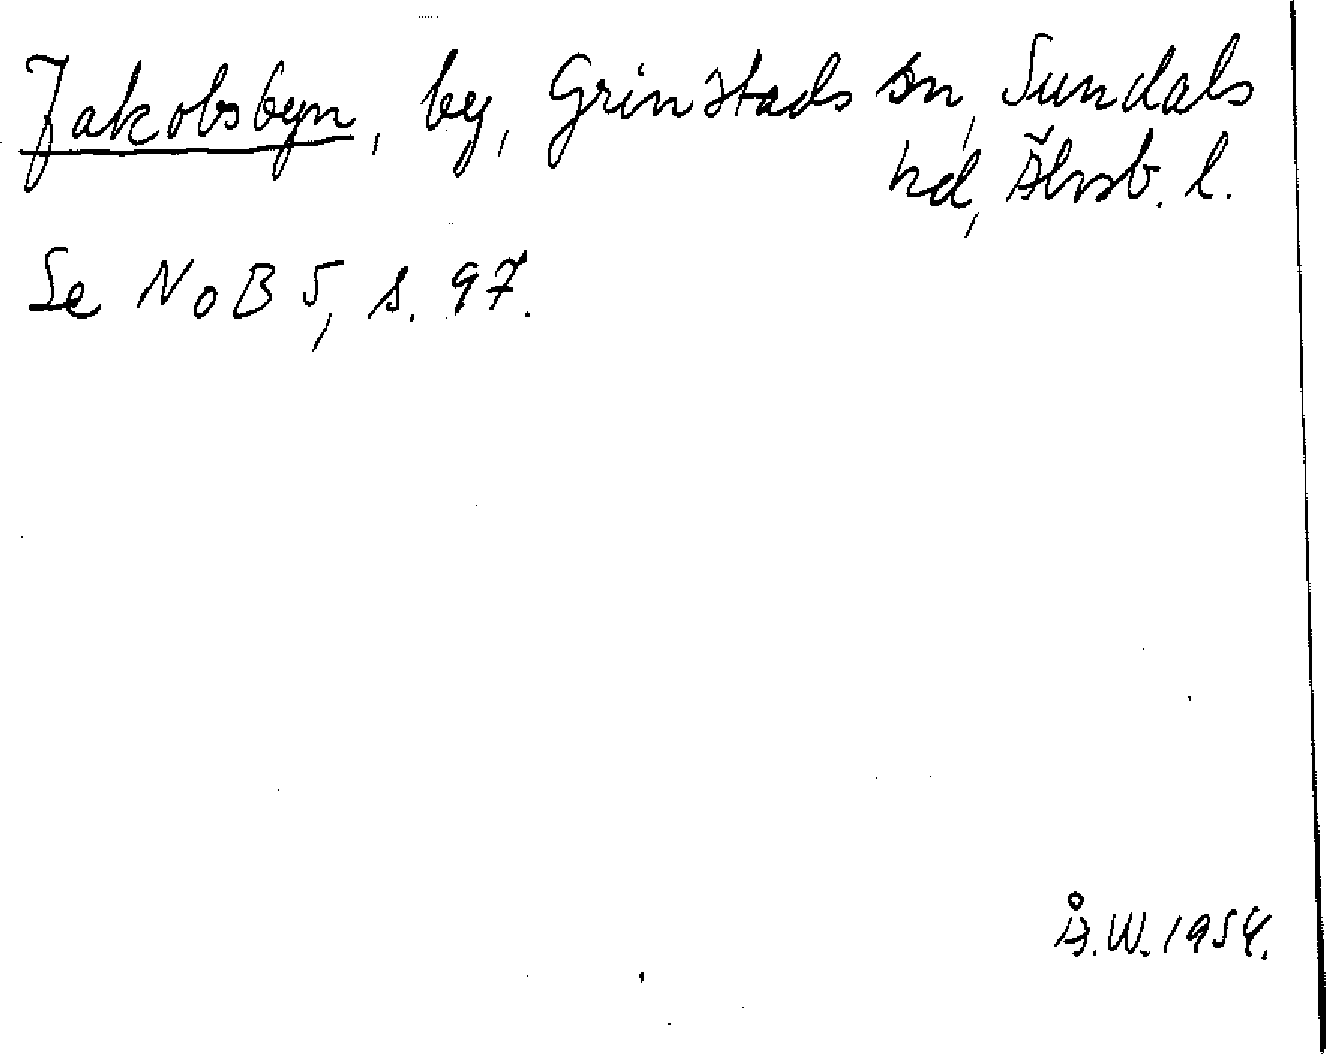 Jakobsbyn, by, Grinstads sn, Sundals
hd, Älvsb. l.
Se NoB 5, s. 97.
Å.W. 1954.